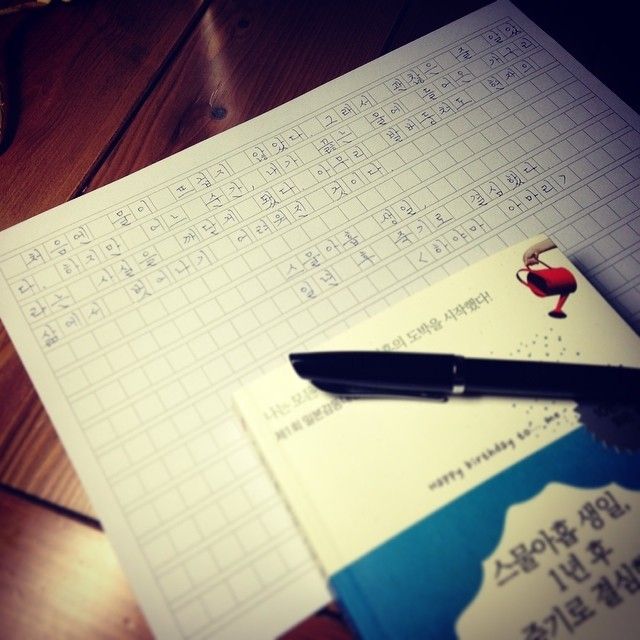 처음엔 물이 뜨겁지 않았다. 그래서 괜찮은 줄 알았
다. 하지만 어느 순간 내가 끓는 물에 들어온 개구리
라는 사실을 깨닫게 됐다. 아무리 발버둥쳐도 현재의
삶에서 벗어나기 어려워진 것이다.
스물아홉 생일,
일년 후 죽기로 결심했다
<하야마 아마리>
나는 모든 의 도박을 시작했다!
제1회 일본감동
Happy birthday to me
스물아홉 생일,
1년 후
죽기로 결심